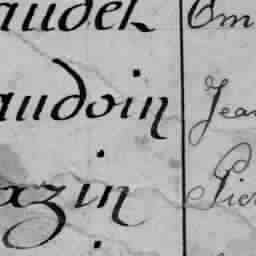 audet Em
audoin Jean
azin Pier